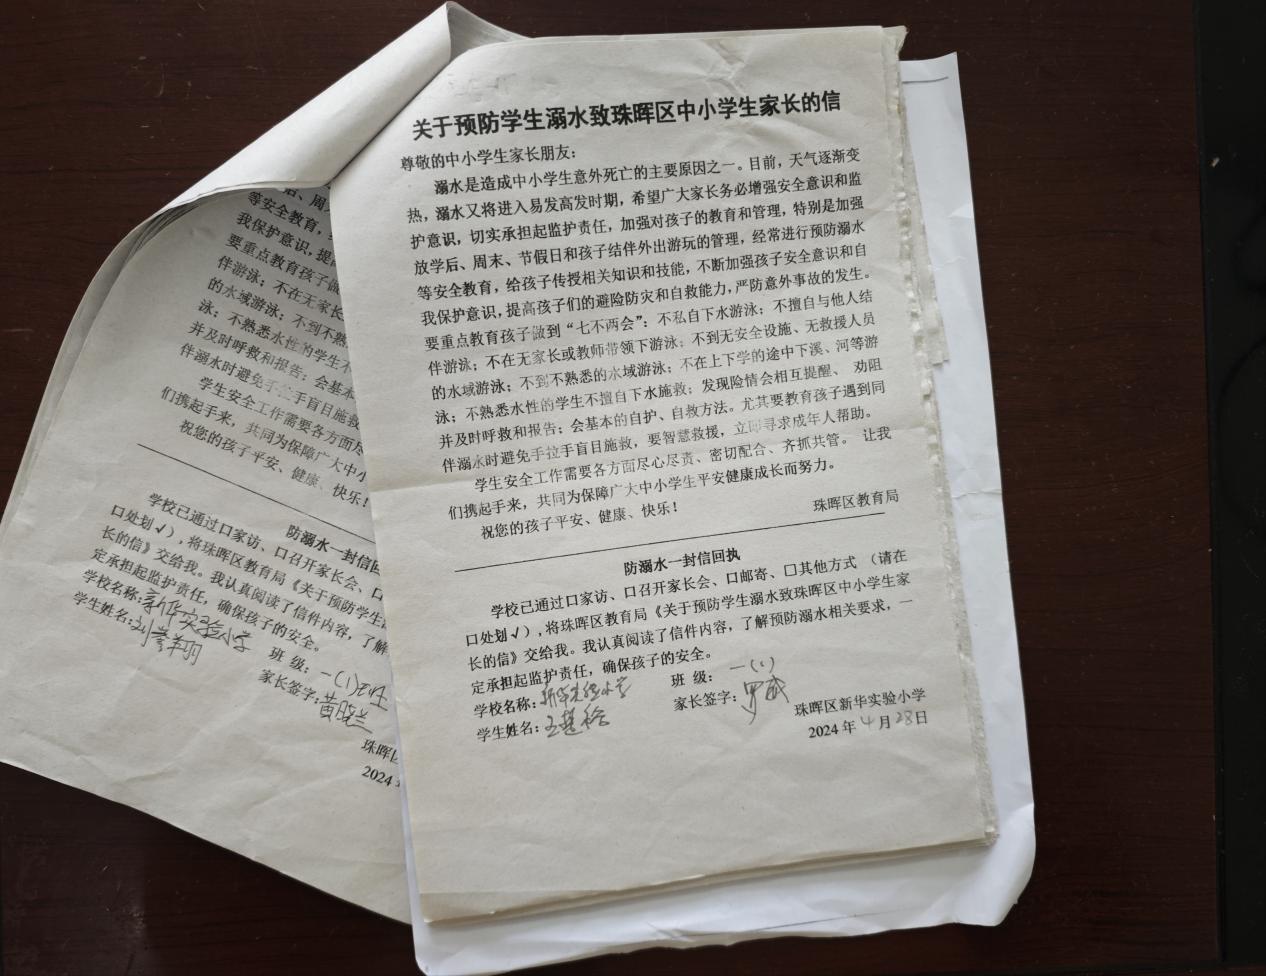 关于预防学生溺水致珠晖区中小学生家长的信
尊敬的中小学生家长朋友：
溺水是造成中小学生意外死亡的主要原因之一。目前，天气逐渐变
热，溺水又将进入易发高发时期，希望广大家长务必增强安全意识和监
护意识，切实承担起监护责任，加强对孩子的教育和管理，特别是加强
放学后、周末、节假日和孩子结伴外出游玩的管理，经常进行预防溺水
等安全教育，给孩子传授相关知识和技能，不断加强孩子安全意识和自
我保护意识，提高孩子们的避险防灾和自救能力，严防意外事故的发生。
要重点教育孩子做到“七不两会”：不私自下水游泳；不擅自与他人结
伴游泳；不在无家长或教师带领下游泳；不到无安全设施、无救援人员
的水域游泳；不到不熟悉的水域游泳；不在上下学的途中下溪、河等游
泳；不熟悉水性的学生不擅自下水施救；发现险情会相互提醒、劝阻
并及时呼救和报告；会基本的自护、自救方法。尤其要教育孩子遇到同
伴溺水时避免手拉手盲目施救，要智慧救援，立即寻求成年人帮助。
学生安全工作需要各方面尽心尽责、密切配合、齐抓共管。让我
们携起手来，共同为保障广大中小学生平安健康成长而努力。
祝您的孩子平安、健康、快乐！
珠晖区教育局
防溺水一封信回执
学校已通过口家访、口召开家长会、口邮寄、口其他方式（请在
口处划√），将珠晖区教育局《关于预防学生溺水致珠晖区中小学生家
长的信》交给我。我认真阅读了信件内容，了解预防溺水相关要求，一
定承担起监护责任，确保孩子的安全。
学校名称：新华实验小学 班 级：一（1）
学生姓名：王楚 家长签字：罗武
珠晖区新华实验小学
2024年4月28日
后、周
等安全教育，
我保护意识，提
要重点教育孩子做
伴游泳；不在无家长
的水域游泳；不到不熟
泳；不熟悉水性的学生不
并及时呼救和报告；会基本
伴溺水时避免手拉手盲目施救
学生安全工作需要各方面尽
们携起手来，共同为保障广大中小
祝您的孩子平安、健康、快乐！
防溺水一封信回
学校已通过口家访、口召开家长会、口
口处划√），将珠晖区教育局《关于预防学生
长的信》交给我。我认真阅读了信件内容，了解
定承担起监护责任，确保孩子的安全。
学校名称：新华实验小学 班 级：一（1）班
学生姓名：刘 家长签字：黄晓兰
珠晖区
2024